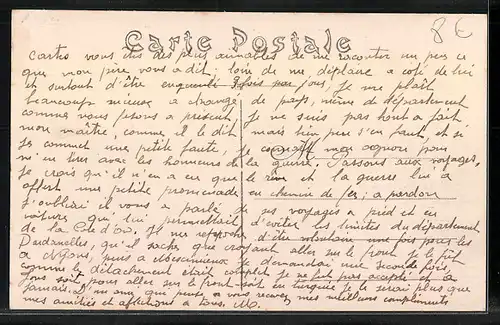 Carte Postale
8€
Certes vous êtes des plus aimables de me raconter un peu ce
que mon père vous a dit, loin de me déplaire à côté de lui
et surtout d'être enguenlé 3 fois par jour, je me plaît
beaucoup mieux à changé de pays, même de département
comme nous faisons à présent. Je ne suis pas tout à fait
mon maître, comme il le dit mais bien peu s'en faut, et si
je commet une petite faute, je connait mon oignon pour
m'en tirer avec les honneurs de la guerre. Passons aux voyages,
je crois qu'il n'en a eu que le rêve et la guerre lui a
offert une petite promenade en chemin de fer; a pardon
j'oubliai il vous a parlé de ses voyages a pied et en
voiture qui lui permettait d'éviter les limites du département
de la Côte d'Or. Il me reproche d'être volontaire une fois pour les
Dardanelles, qu'il sache que croyant aller sur le front je le fut
à Nyons, puis à Mescimieux je demandai une seconde fois,
comme le détachement était complet je ne fut pas accepté, il y a
jamais, pour aller sur le front soit en turquie je le serai plus que
mes amitiés et affections à tous. meilleurs compliments